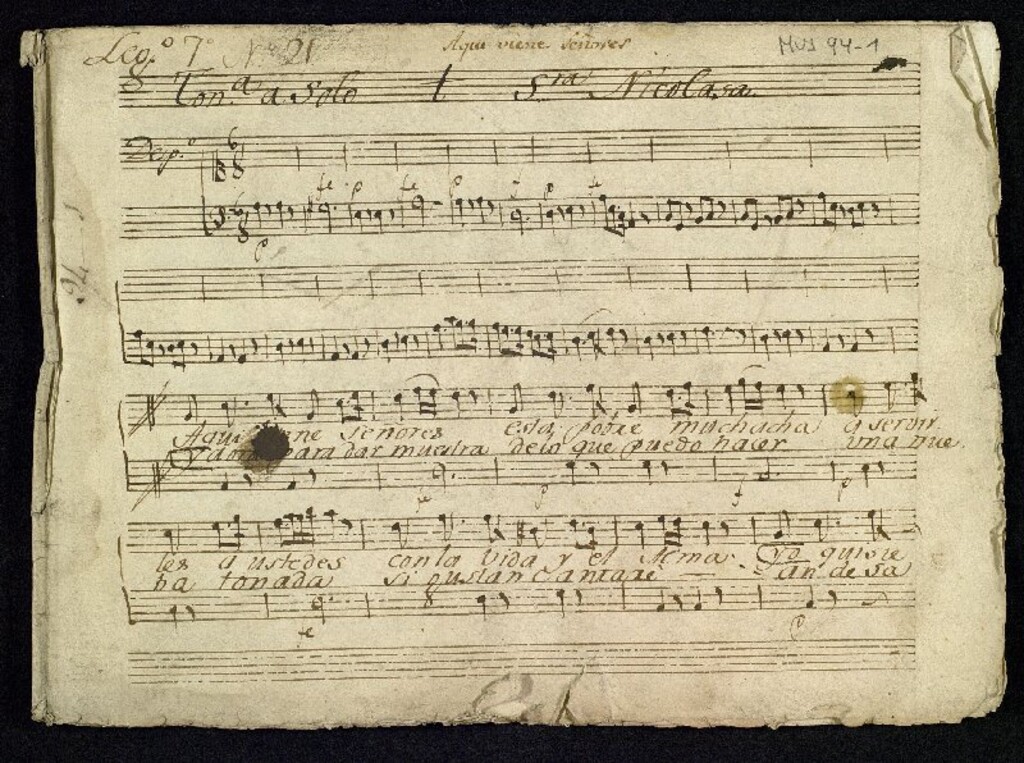 Leg.º 7º Nº 21
Aqui viene Señores
MUS 94-1
Ton.ª a Solo
Sra Nicolasa
Desp.º
6/8
fe p fe p f p fe
6/8
p
94-1
Aqui ne Señores esta pobre muchacha a servir
para dar muestra de lo que puedo hacer una nue
fe p f p
les a ustedes con la vida y el Alma yo quisie
ba tonada si gustan Cantare an de sa
fe p